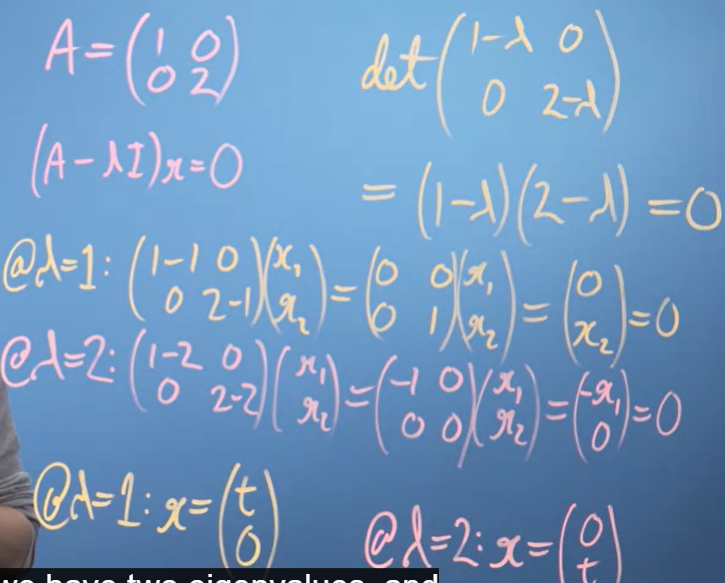 A = (1 0 0 2)
det (1-λ 0 0 2-λ)
(A - λI)x = 0
= (1-λ)(2-λ) = 0
@λ=1: (1-1 0 0 2-1)(x₁ x₂) = (0 0 0 1)(x₁ x₂) = (0 x₂) = 0
@λ=2: (1-2 0 0 2-2)(x₁ x₂) = (-1 0 0 0)(x₁ x₂) = (-x₁ 0) = 0
@λ=1: x = (t 0)
@λ=2: x = (0 t)
we have two eigenvalues, and